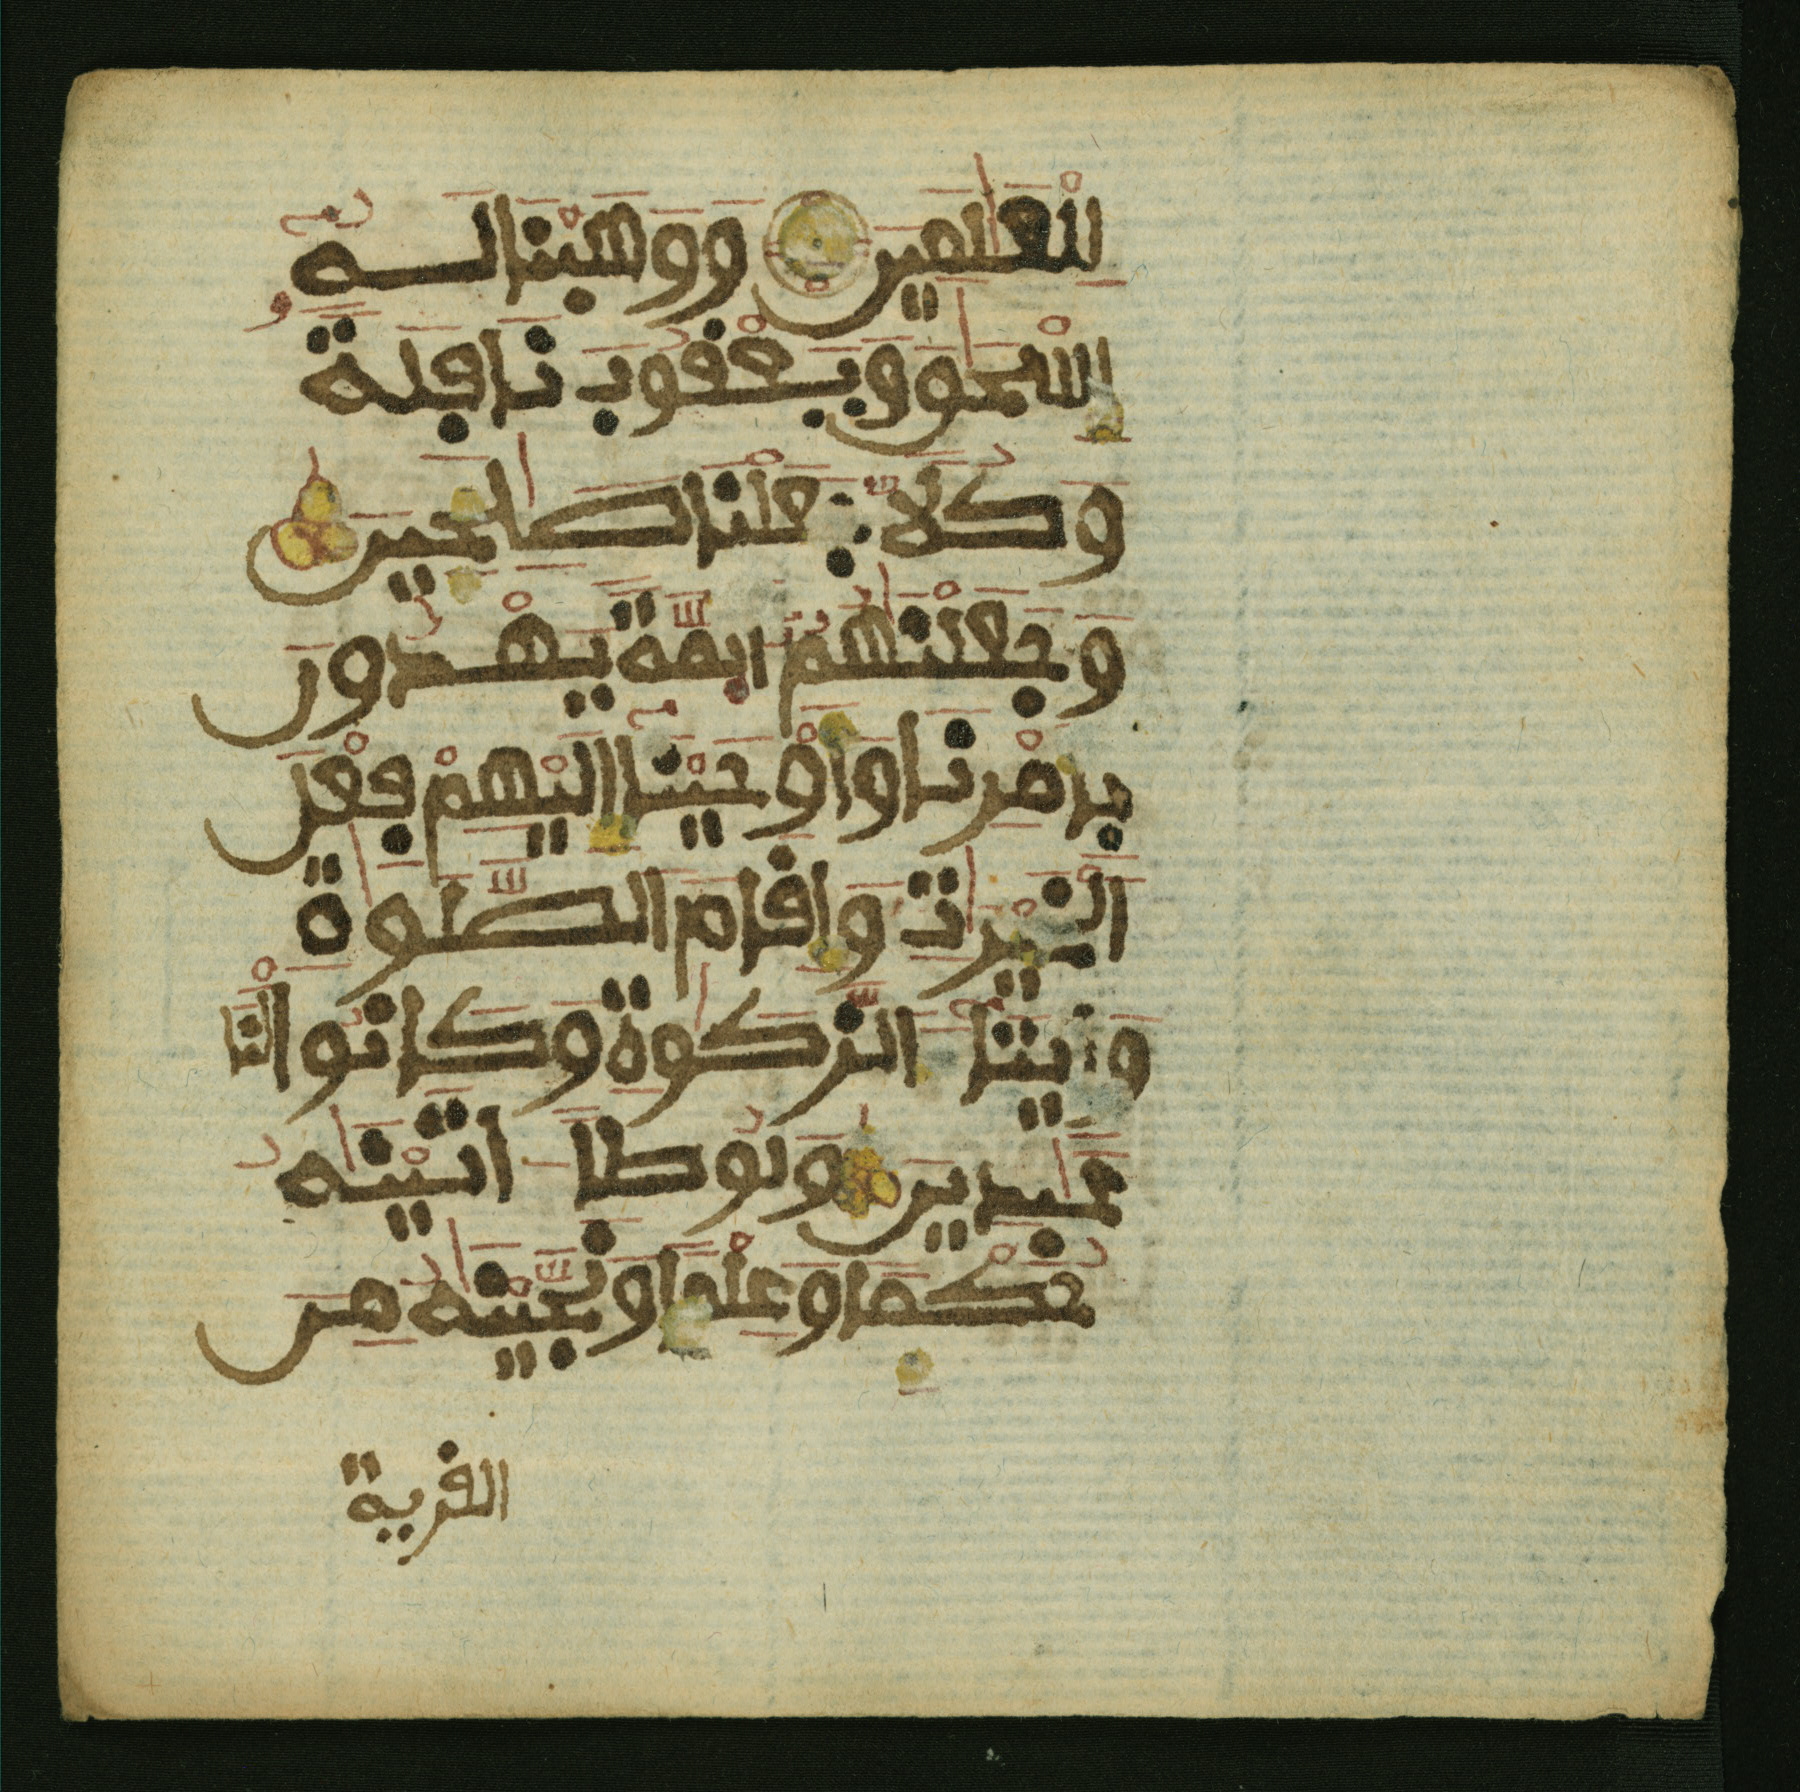 لِلْعَٰلَمِينَ وَوَهَبْنَا لَهُۥ
إِسْحَٰقَ وَيَعْقُوبَ نَافِلَةً
وَكُلّاً جَعَلْنَا صَالِحِينَ
وَجَعَلْنَٰهُمُۥ أَيِمَّةً يَهْدُونَ
بِأَمْرِنَا وَأَوْحَيْنَا إِلَيْهِمْ فِعْلَ
الْخَيْرَٰتِ وَإِقَامَ الصَّلَوٰةِ
وَإِيتَآءَ الزَّكَوٰةِ وَكَانُوا لَنَا
عَٰبِدِينَ وَلُوطًا اتَيْنَٰهُ
حُكْمًا وَعِلْمًا وَنَجَّيْنَٰهُ مِنَ
القرية